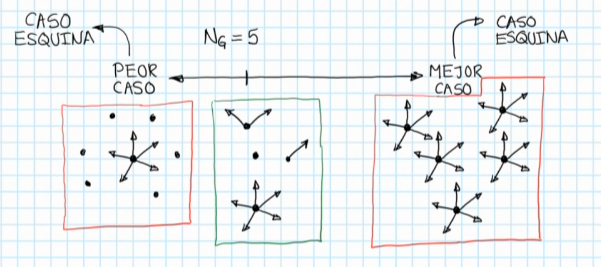 CASO
ESQUINA
N_G = 5
CASO
ESQUINA
PEOR
CASO
MEJOR
CASO